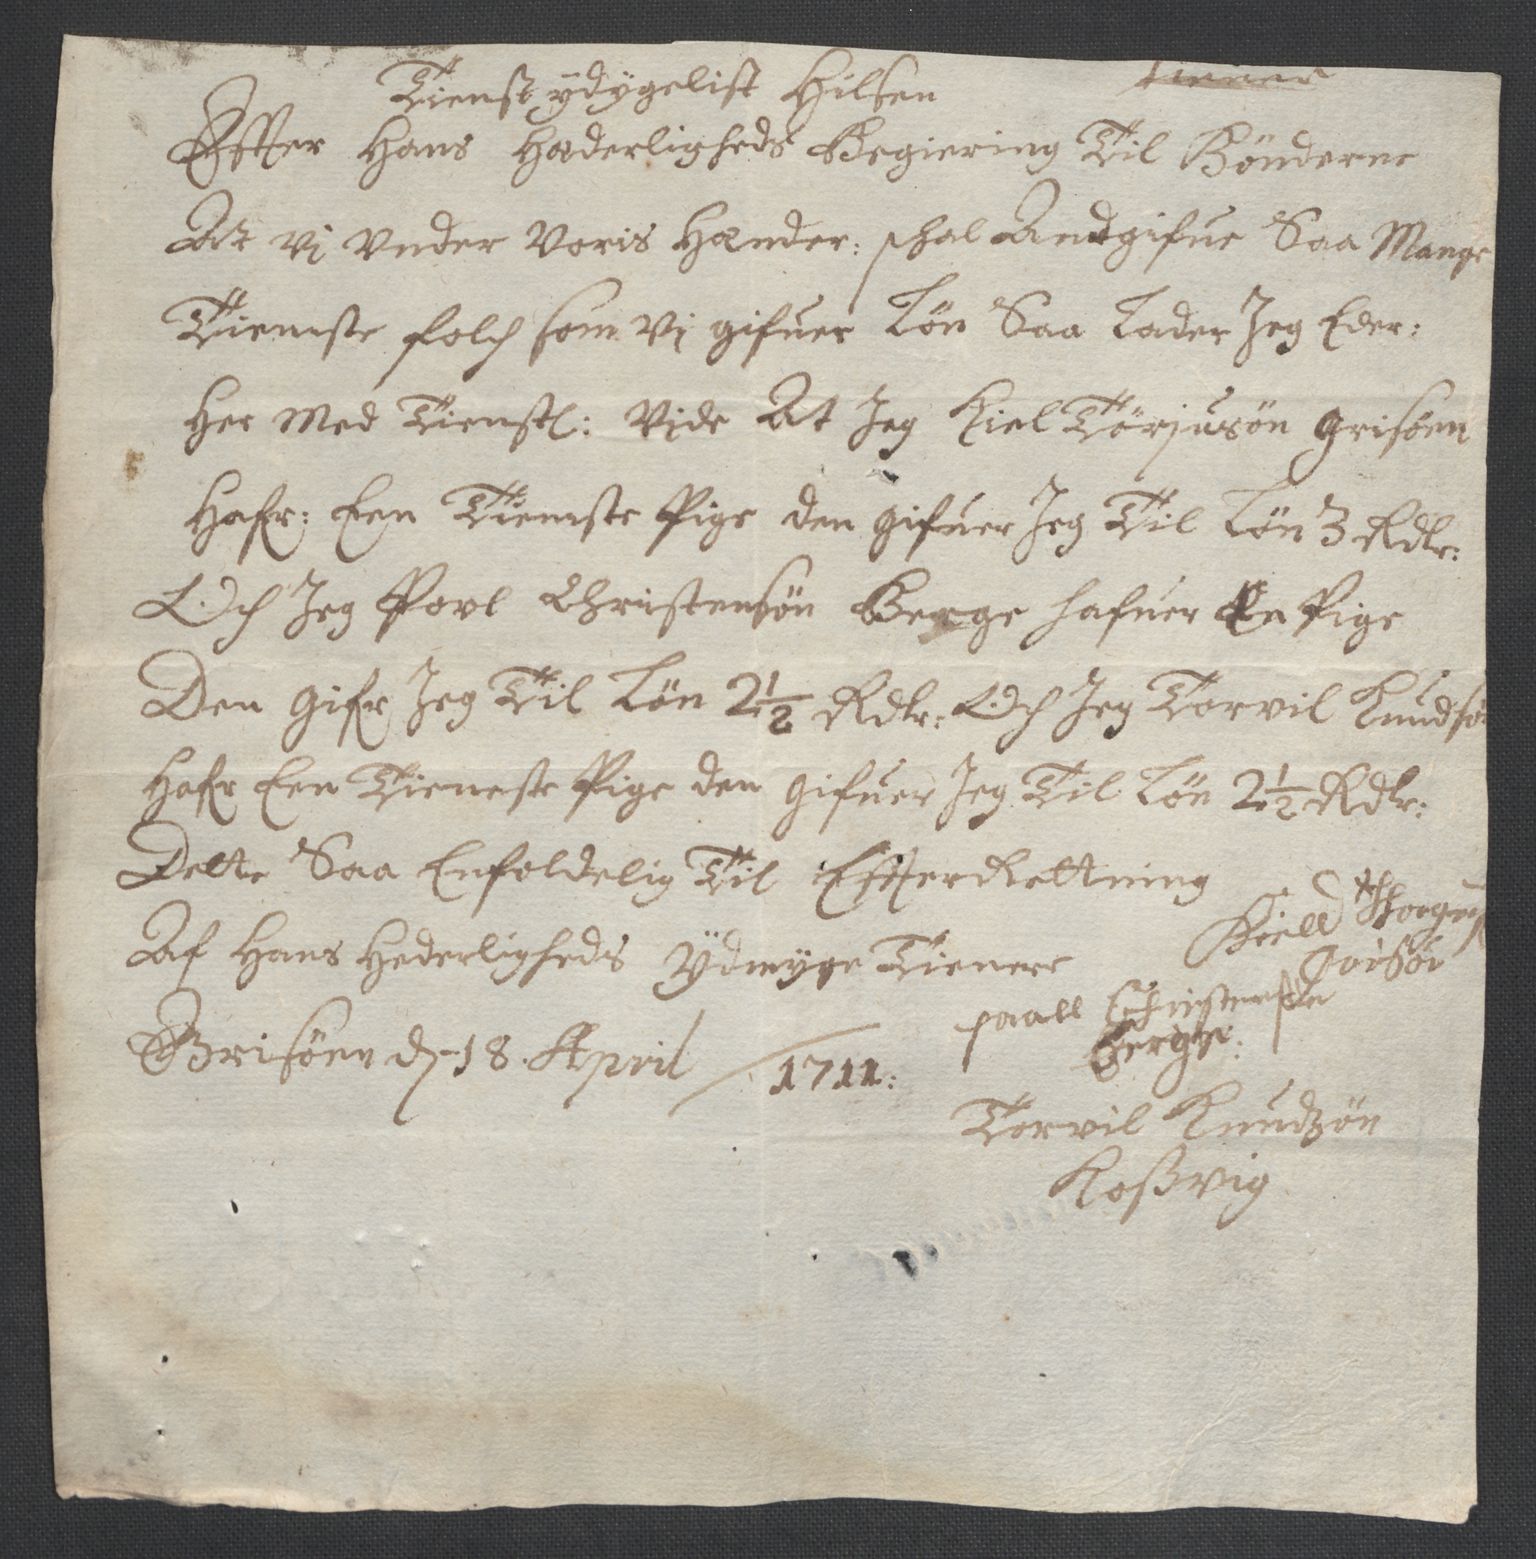 Tienst ydygelist Hilsen
Effter Hans Hæderligheds Begiering Til Bönderne
At vj vnder Voris Hænder: schal Andgifue Saa Mange
Tieneste folch som Vj gifuer Løn Saa Lader Jeg Eder:
Her Med Tienstl: Vide At Jeg Kiel Törjusön Grisöen
Hafr: Een Tieneste Pige den gifuer Jeg Til Løn 3 Rdlr:
Och Jeg Povl Christensön Berge hafuer En Pige
Den Gifr Jeg Til Løn 2½ Rdlr: Och Jeg Torvil Knudsön
Hafr Een Tieneste Pige den Gifuer Jeg Til Løn 2½ Rdlr:
Dette Saa Enfoldelig Til Effter Rettning
Af Hans Hederligheds Ydmyge Tienere
Grisöen d: 18. April 1711:
Kield
paall
Berge:
Torvil Knudzön
Koßvig